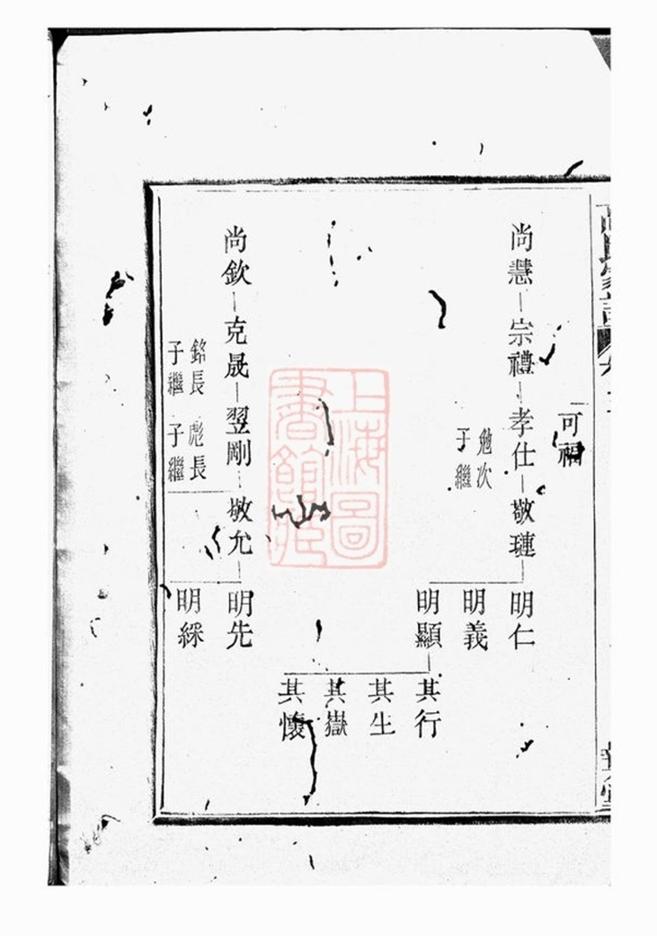 可福
尚慧 宗禮 孝仕 敬璉 明仁
勉次
子繼
明義
明顯 其行
其生
其嶽
其懷
尚欽 克晟 翌剛 敬允 明先
銘長 彪長
子繼 子繼
明綵
上海圖
書館藏